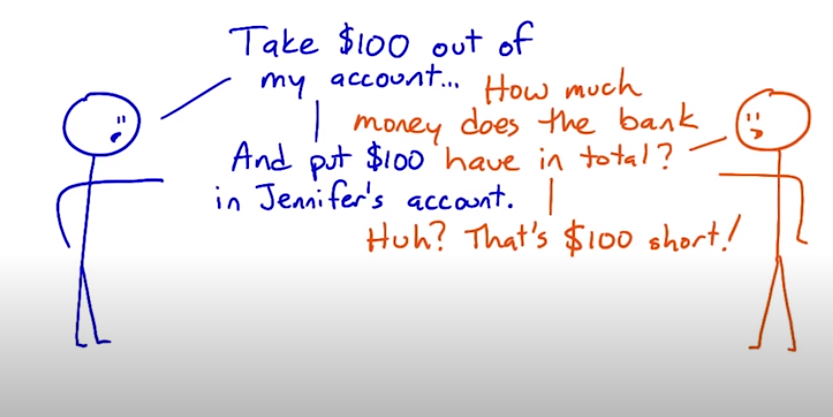 Take $100 out of
my account...
How much
money does the bank
have in total?
And put $100
in Jennifer's account.
Huh? That's $100 short!